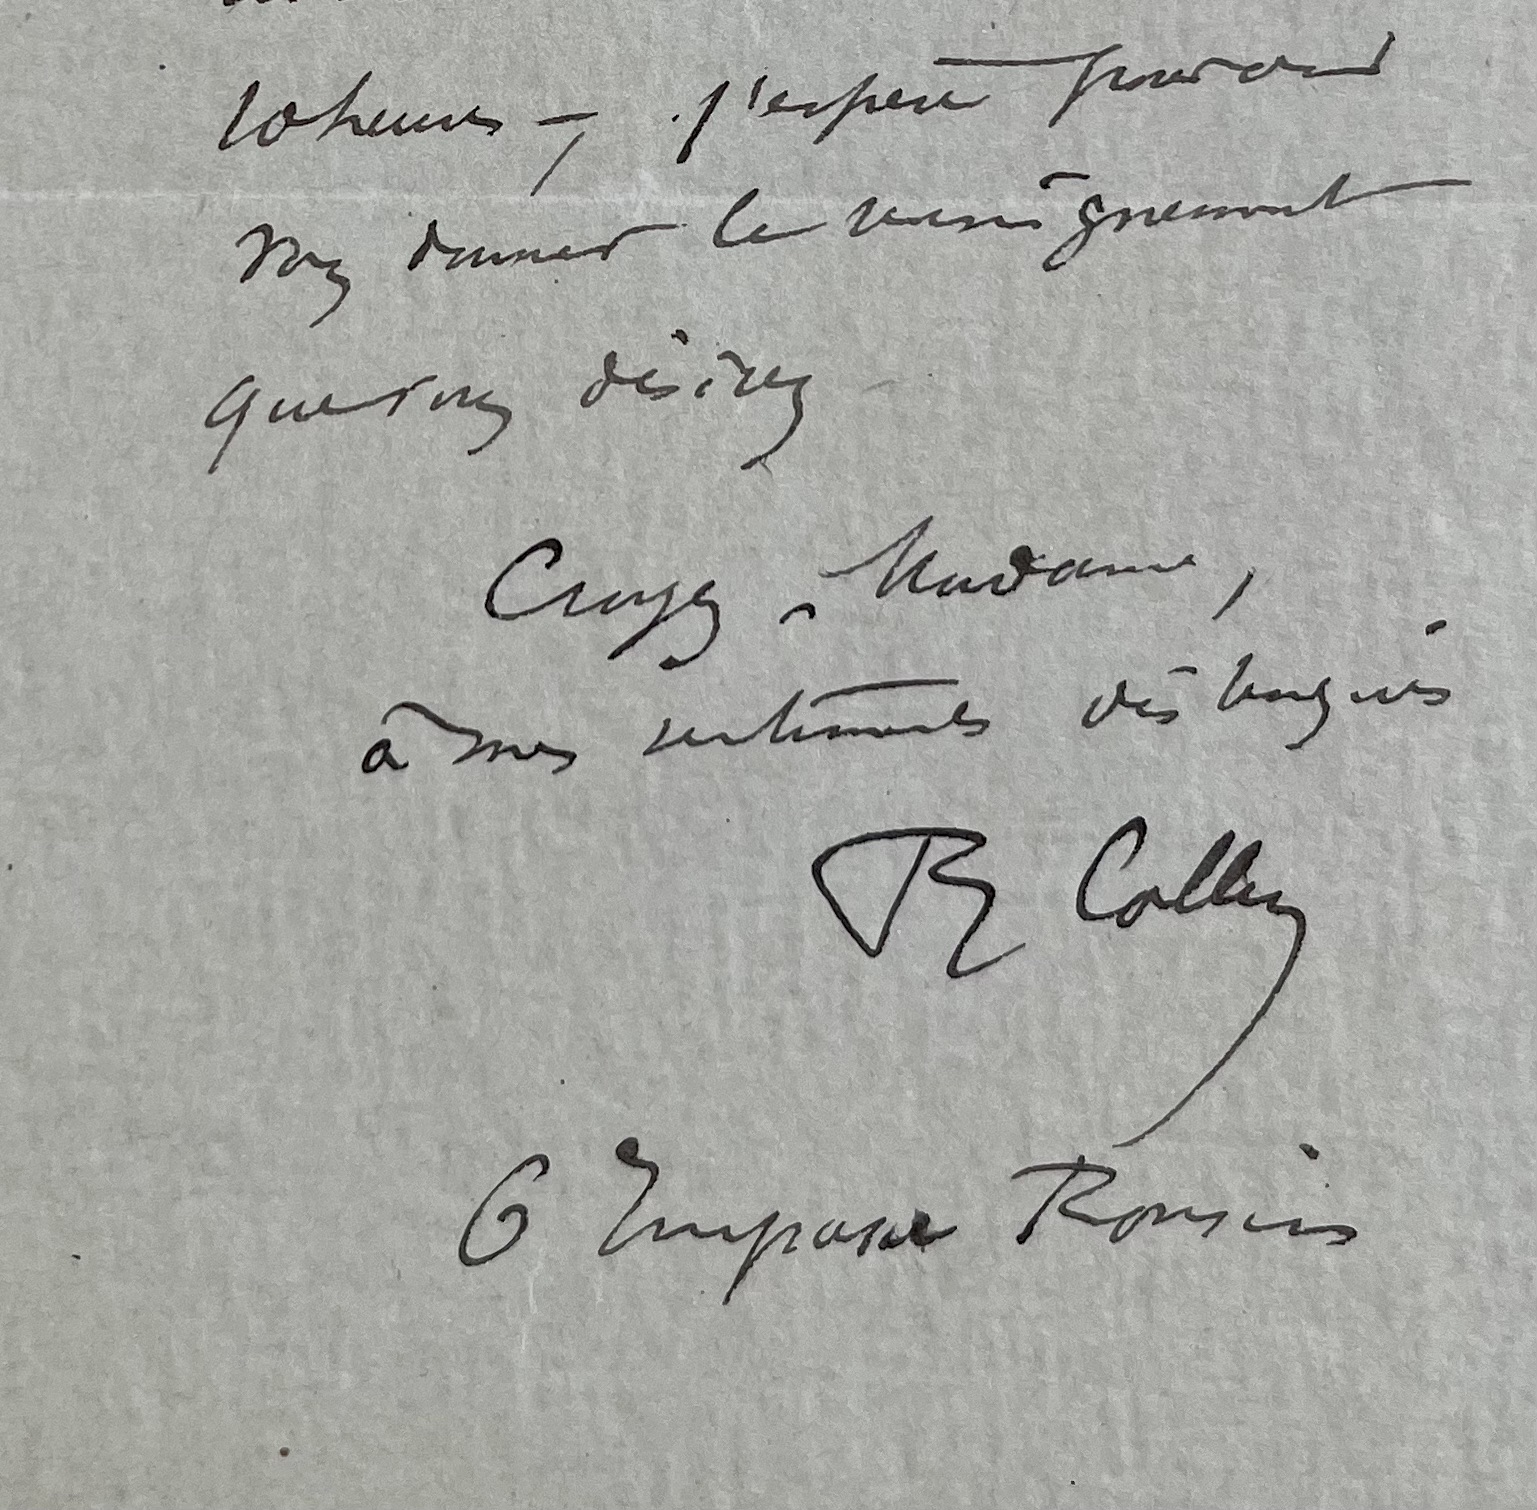 10 heures –, j'espère pouvoir
vous donner le renseignement
que vous désirez
Croyez, Madame,
à mes sentiments distingués
R Collin
6 Impasse Ronsin